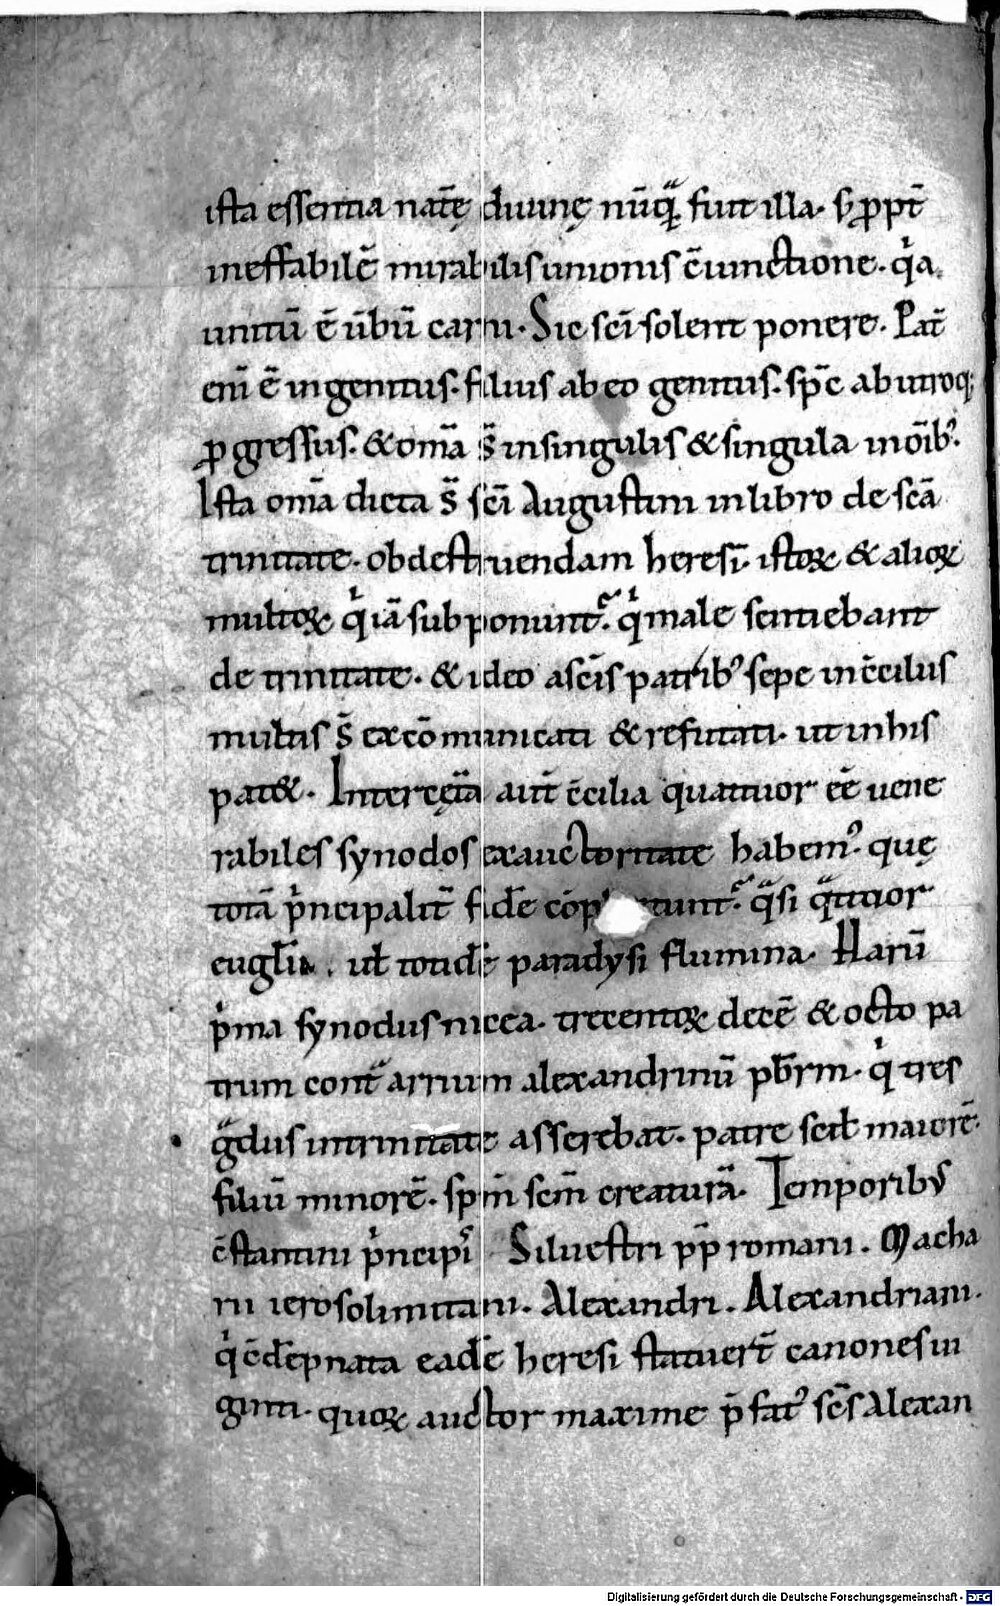 ista essentia natę̄ diuinę nūq̄ fuit illa. s; ꝓpt̄
ineffabilē mirabilis unionis c̄iunctione. qͥa
unitū ē ūbū carni. Sic sc̄i solent ponere. Pat̄
eni̅ ē ingenitus. filius ab eo genitus. sp̄c ab utroq;
ꝓgressus. & om̄a s̄ in singulis & singula in om̄ib⁹.
Ista om̄a dicta s̄ sc̄i Augustini in libro de sc̄a
trinitate. ob destruendam heresi̅ istoꝝ & alioꝝ
multoꝝ qͥ iā subponunt᷑. qͥ male sentiebant
de trinitate. & ideo a sc̄is patrib⁹ sepe in c̄ciliis
multis s̄ excōmunicati & refutati. ut in his
pat&. Inter cęt̄a aut̄ c̄cilia quattuor ee̅ uene
rabiles synodos ex auctoritate habem⁹. quę
totā pͥncipalit̄ fidē cōpl tunt᷑. qͣsi qͣttuor
eugl̄ia. uł totidē paradysi flumina. Harū
pͥma synodus nicea. trecentoꝝ decē & octo pa
trum contͣ arrium alexandrinū pb̄rm. qͥ tres
gͣdus in trinitate asserebat. patrē scił maiorē.
filiū minorē. sp̄m sc̄m creaturā. Temporibus
c̄stantini pͥncipi̅ Siluestri pp̄ romani. Macha
rii ierosolimitani. Alexandri. Alexandriani.
qͥ c̄dēpnata eadē heresi statuer̄t canones ui
ginti. quoꝝ auctor maxime p̄fat⁹ sc̄s Alexan
Digitalisierung gefördert durch die Deutsche Forschungsgemeinschaft - DFG